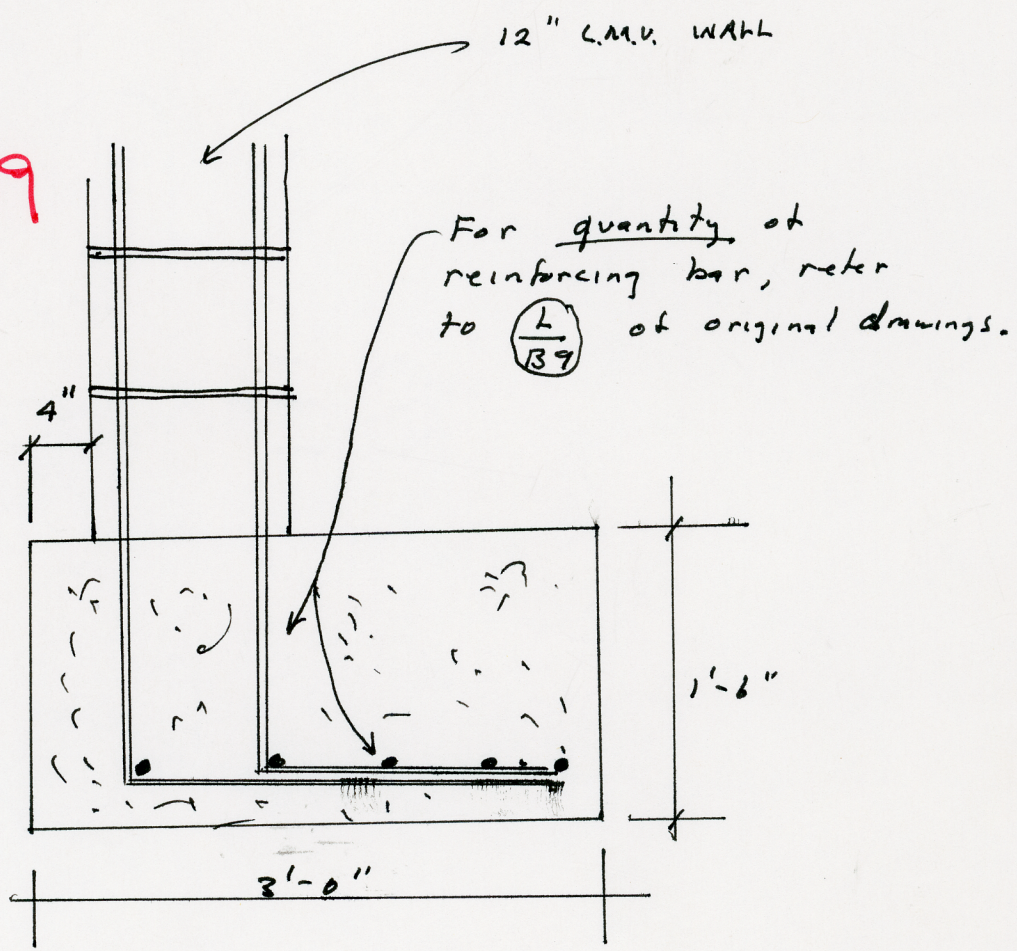 12" C.M.U. WALL
9
For quantity of
reinforcing bar, refer
to L/B9 of original drawings.
4"
1'-6"
3'-0"